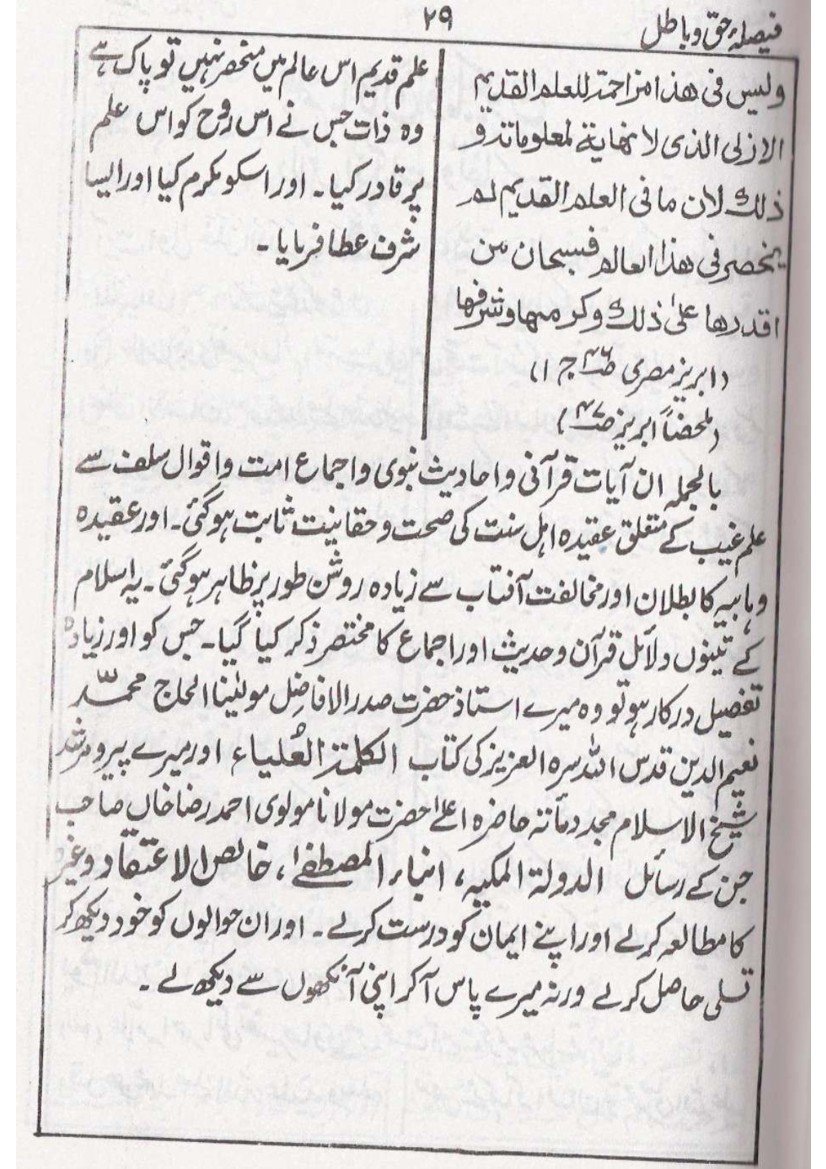 فیصلۂ حق و باطل
۲۹
ولیس فی هذا مزاحمة للعلم القدیم
الازلی الذی لا نهایة لمعلوماته و
ذلك لان ما فی العلم القدیم لم
ینحصر فی هذا العالم فسبحان من
اقدرها علیٰ ذلك وکرمها وشرفها
(ابریز مصری ص۴۶ ج۱)
(لمحضاً ابریز ص۴۷)
علم قدیم اس عالم میں منحصر نہیں تو پاک ہے
وہ ذات جس نے اس روح کو اس علم
پر قادر کیا۔ اور اسکو مکرم کیا اور ایسا
شرف عطا فرمایا۔
بالجملہ ان آیات قرآنی و احادیث نبوی و اجماع امت و اقوال سلف سے
علم غیب کے متعلق عقیدہ اہل سنت کی صحت و حقانیت ثابت ہوگئی۔ اور عقیدہ
وہابیہ کا بطلان اور مخالفت آفتاب سے زیادہ روشن طور پر ظاہر ہوگئی۔ یہ اسلام
کے تینوں دلائل قرآن و حدیث اور اجماع کا مختصر ذکر کیا گیا۔ جس کو اور زیادہ
تفصیل درکار ہو تو وہ میرے استاذ حضرت صدر الافاضل مولینا الحاج محمد
نعیم الدین قدس اللہ سرہ العزیز کی کتاب الکلمة العُلیاء اور میرے پیر و مرشد
شیخ الاسلام مجدد مأتہ حاضرہ اعلےٰ حضرت مولانا مولوی احمد رضا خاں صاحب
جن کے رسائل الدولة المکیہ، انباء المصطفےٰ، خالص الاعتقاد وغیرہ
کا مطالعہ کرلے اور اپنے ایمان کو درست کرلے۔ اور ان حوالوں کو خود دیکھ کر
تسلی حاصل کرلے ورنہ میرے پاس آکر اپنی آنکھوں سے دیکھ لے۔